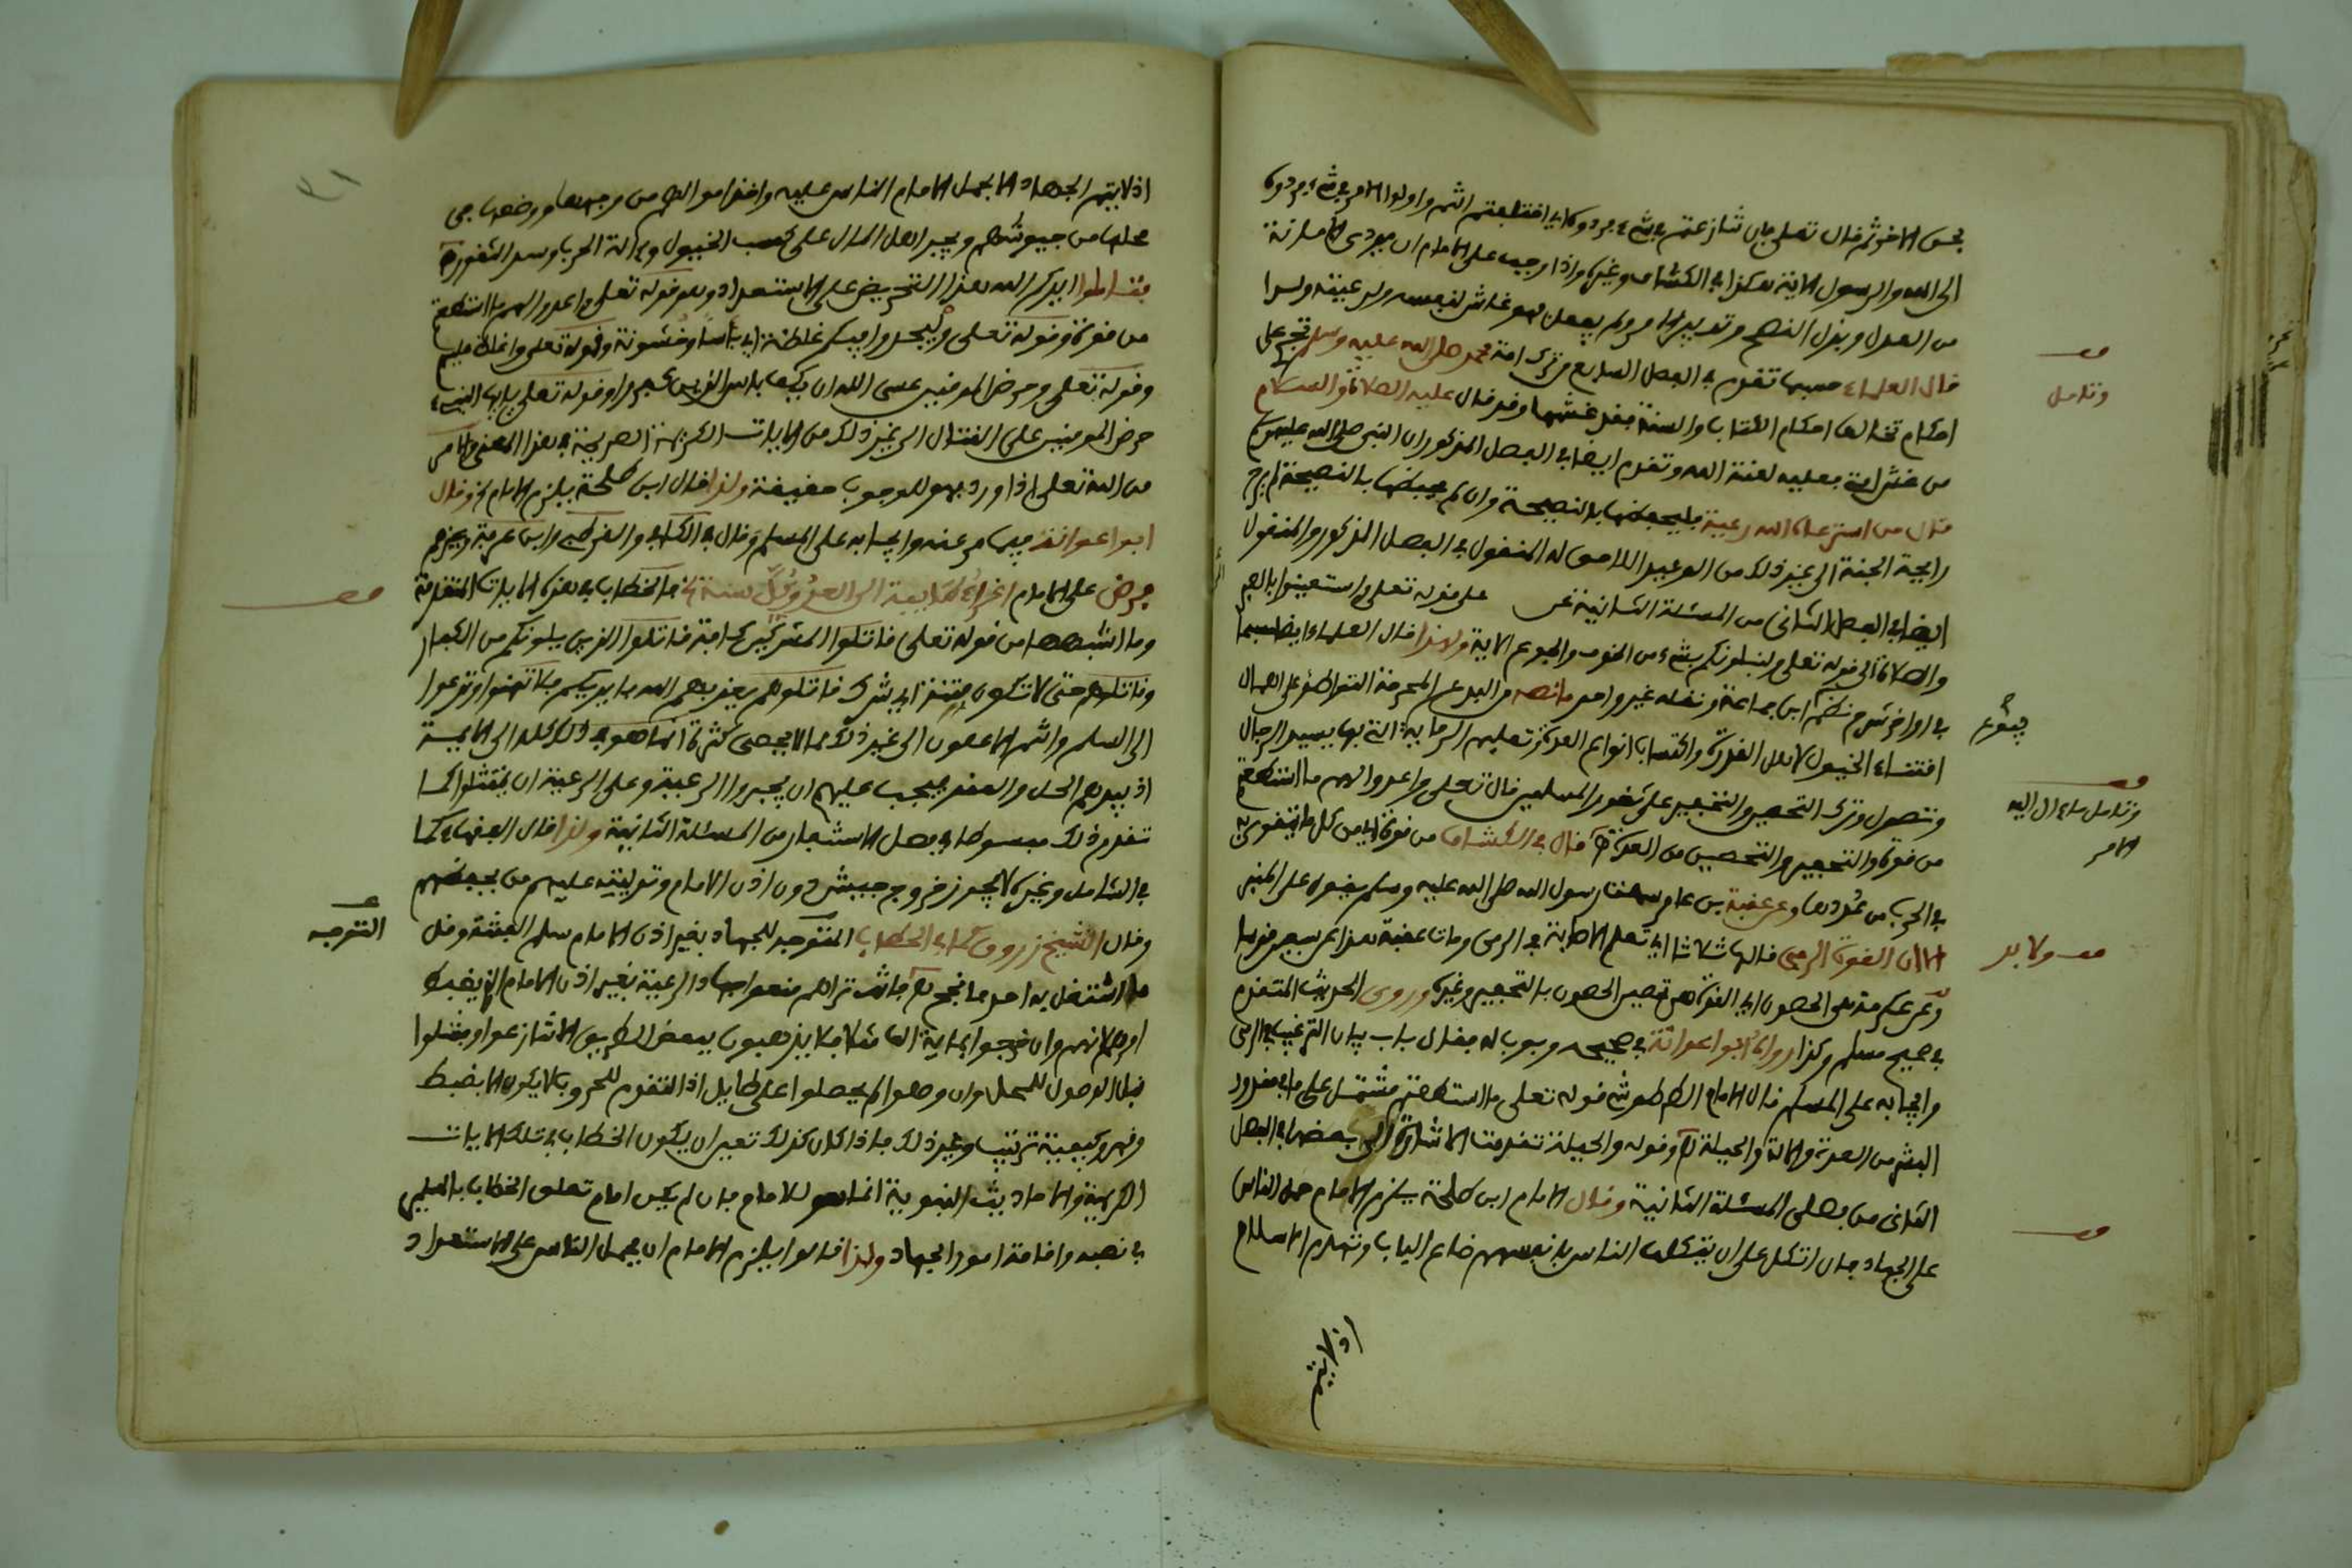 بحق الاخوة ثم قال تعلى فان تنازعتم في شيء فردوه اي اختلفتم انتم واولوا الامر في شيء فردوه
الى الله والرسول الاية هكذا في الكشاف وغيره واذا وجب على الامام ان يودي الامانة
من العدل وبذل النصح وتدبير الامر ولم يفعل فهو غاش لنفسه ولرعيته ولهذا
قال العلماء حسبما تقدم في الفصل السابع من ترك امة محمد صلى الله عليه وسلم تجري على
احكام تخالف احكام الكتاب والسنة فقد غشها وقد قال عليه الصلاة والسلام
من غش امتي فعليه لعنة الله وتقدم ايضا في الفصل المذكور ان النبي صلى الله عليه وسلم
قال من استرعاه الله رعية فليحفظها بالنصيحة وان لم يحفظها بالنصيحة لم يرح
رايحة الجنة الى غير ذلك من الوعيد اللاحق له المنقول في الفصل المذكور والمنقول
ايضا في الفصل الثاني من المسئلة الثانية على قوله تعلى واستعينوا بالصبر
والصلاة الى قوله تعلى ولنبلونكم بشيء من الخوف والجوع الاية ولهذا قال العلماء ايضا
في اواخر شرح نظم ابن جماعة ونقله غير واحد ما نصه من البدع المحرمة التواطؤ على اهمال
اقتناء الخيول لاهل القدرة واكتساب انواع العدة وتعليم الرماية التي بها يسود الرجال
وتصول وترك التحصين والتحفير على ثغور المسلمين قال تعلى واعدوا لهم ما استطعتم
من قوة والتحفير والتحصين من العدة قال في الكشاف من قوة اي من كل ما يتقوى به
في الحرب من عُددها وعن عقبة بن عامر سمعت رسول الله صلى الله عليه وسلم يقول على المنبر
الا ان القوة الرمي قالها ثلاثا اي تعلم الاصابة في الرمي ومات عقبة عن سبعين قوسا
وعن عكرمة هي الحصون اي القوة هي تحصين الحصون بالتحفير وغيره وروى الحديث المتقدم
في صحيح مسلم وكذا رواه ابو اعوانة في صحيحه وبوب له فقال باب بيان الترغيب في الرمي
وايجابه على المسلم قال الامام الطرطوشي قوله تعلى ما استطعتم مشتمل على ما في مقدور
البشر من العدة والالة والحيلة وقوله والحيلة تقدمت الاشارة الى بعضها في الفصل
الثاني من فصلي المسئلة الثانية وقال الامام ابن طلحة يلزم الامام حمل الناس
على الجهاد فان اتكل على ان يتكلفه الناس بانفسهم ضاع الباب وتهدم الاسلام
اذ لا يتم
قف
وتامل
قف
وتامل
الامر
قف ولا بد
قف
اذ لا يتم الجهاد الا بحمل الامام الناس عليه واخذ اموالهم من وجهها ووضعها في
محلها من جيوشهم ويجبر اهل المال على كسب الخيول والة الحرب وسد الثغور
فتاملوا ايدكم الله هذا التحريض على الاستعداد وهو قوله تعلى واعدوا لهم ما استطعتم
من قوة وقوله تعلى وليجدوا فيكم غلظة اي باسا وخشونة وقوله تعلى واغلظ عليهم
وقوله تعلى وحرض المومنين عسى الله ان يكف باس الذين كفروا وقوله تعلى يايها النبيء
حرض المومنين على القتال الى غير ذلك من الايات الكريمة الصريحة في هذا المعنى والامر
من الله تعلى اذا ورد فهو للوجوب حقيقة ولذا قال ابن طلحة يلزم الامام وقال
ابو اعوانة فيما مر عنه وايجابه على المسلم وقال في الكافي والقرطبي وابن عرفة وغيرهم
فرض على الامام اغزاء طايفة الى العدو كل سنة فالخطاب في هذه الايات المتقدمة
وما اشبهها من قوله تعلى قاتلوا المشركين كافة قاتلوا الذين يلونكم من الكفار
وقاتلوهم حتى لا تكون فتنة اي شرك قاتلوهم يعذبهم الله بايديكم فلا تهنوا وتدعوا
الى السلم وانتم الاعلون الى غير ذلك مما لا يحصى كثرة انما هو في ذلك كله الى الايمة
اذ بيدهم الحل والعقد فيجب عليهم ان يجبروا الرعية وعلى الرعية ان يمتثلوا كما
تقدم ذلك مبسوطا في فصل الاستنفار من المسئلة الثانية ولذا قال الفقهاء كما
في الشامل وغيره لا يجوز خروج جيش دون اذن الامام وتوليته عليهم من يحفظهم
وقال الشيخ زروق كما في الحطاب التوجه للجهاد بغير اذن الامام سلم الفتنة وقل
ما اشتغل به احد فانجح فانت تراهم منعوا جهاد الرعية بغير اذن الامام الذي يضبط
امرهم لانهم وان خرجوا بماية الف مثلا فلا يذهبون ببعض الطريق الا تنازعوا وفشلوا
قبل الوصول للمحل وان وصلوا لم يحصلوا على طايل اذ التقدم للحروب لا يكون الا بضبط
وقهر وكيفية ترتيب وغير ذلك فاذا كان كذلك تعين ان يكون الخطاب في تلك الايات
الكريمة والاحاديث النبوية انما هو للامام فان لم يكن امام تعلق الخطاب بالمسلمين
في نصبه واقامة امور الجهاد ولذا قالوا يلزم الامام ان يحمل الناس على الاستعداد
قف
قف
التوجه